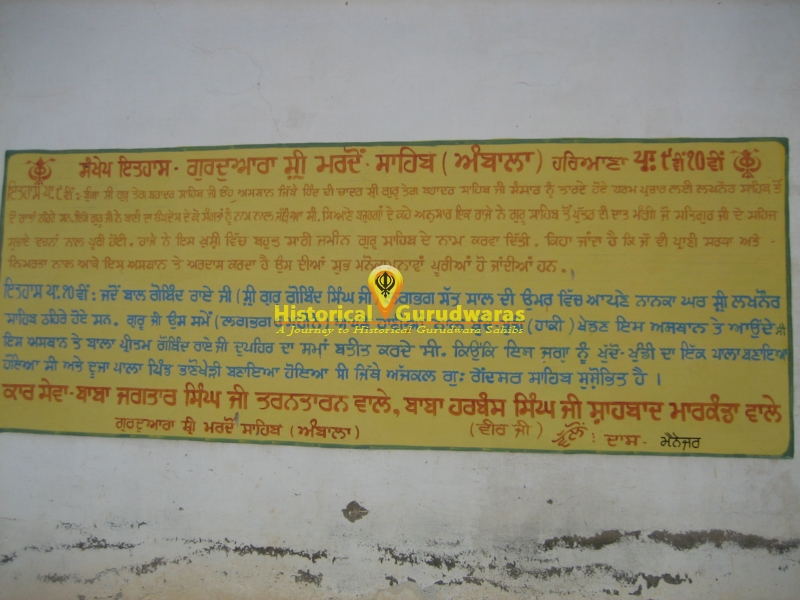 ਸੰਖੇਪ ਇਤਹਾਸ - ਗੁਰਦੁਆਰਾ ਸ਼੍ਰੀ ਮਰਦੋਂ - ਸਾਹਿਬ (ਅੰਬਾਲਾ) ਹਰਿਆਣਾ ਪਾ: ੯ਵੀਂ ੧੦ਵੀਂ
ਇਤਹਾਸ ਪਾ: ੯ਵੀਂ : ਸ਼੍ਰੀ ਗੁਰੂ ਤੇਗ ਬਹਾਦਰ ਸਾਹਿਬ ਜੀ ਇਹ ਅਸਥਾਨ ਜਿੱਥੇ ਹਿੰਦ ਦੀ ਚਾਦਰ ਸ਼੍ਰੀ ਗੁਰੂ ਤੇਗ ਬਹਾਦਰ ਸਾਹਿਬ ਜੀ ਸੰਸਾਰ ਨੂੰ ਤਾਰਦੇ ਹੋਏ ਧਰਮ ਪ੍ਰਚਾਰ ਲਈ ਲਖਨੌਰ ਸਾਹਿਬ ਤੋਂ
ਨਾਮ ਨਾਲ ਸੀ. ਸਿਆਣੇ ਬਜ਼ੁਰਗਾਂ ਦੇ ਕਹੇ ਅਨੁਸਾਰ ਇਕ ਰਾਜੇ ਨੇ ਗੁਰੂ ਸਾਹਿਬ ਤੋਂ ਪੁੱਤਰ ਦੀ ਦਾਤ ਮੰਗੀ ਜੋ ਸਤਿਗੁਰ ਜੀ ਦੇ ਸਹਿਜ
ਸੁਭਾਏ ਵਚਨਾਂ ਨਾਲ ਪੂਰੀ ਹੋਈ. ਰਾਜੇ ਨੇ ਇਸ ਖੁਸ਼ੀ ਵਿੱਚ ਬਹੁਤ ਸਾਰੀ ਜਮੀਨ ਗੁਰੂ ਸਾਹਿਬ ਦੇ ਨਾਮ ਕਰਵਾ ਦਿੱਤੀ. ਕਿਹਾ ਜਾਂਦਾ ਹੈ ਕਿ ਜੋ ਵੀ ਪ੍ਰਾਣੀ ਸਰਧਾ ਅਤੇ -
ਨਿਮਰਤਾ ਨਾਲ ਆਕੇ ਇਸ ਅਸਥਾਨ ਤੇ ਅਰਦਾਸ ਕਰਦਾ ਹੈ ਉਸ ਦੀਆਂ ਸ਼ੁਭ ਮਨੋਕਾਮਨਾਵਾਂ ਪੂਰੀਆਂ ਹੋ ਜਾਂਦੀਆਂ ਹਨ.
ਇਤਿਹਾਸ ਪਾ: ੧੦ਵੀਂ : ਜਦੋਂ ਬਾਲ ਗੋਬਿੰਦ ਰਾਏ ਜੀ (ਸ਼੍ਰੀ ਗੁਰੂ ਗੋਬਿੰਦ ਸਿੰਘ ਜੀ ਲਗਭਗ ਸੱਤ ਸਾਲ ਦੀ ਉਮਰ ਵਿੱਚ ਆਪਣੇ ਨਾਨਕਾ ਘਰ ਸ਼੍ਰੀ ਲਖਨੌਰ
ਸਾਹਿਬ ਠਹਿਰੇ ਹੋਏ ਸਨ. ਗੁਰੂ ਜੀ ਉਸ ਸਮੇਂ (ਲਗਭਗ (ਹਾਕੀ) ਖੇਡਣ ਇਸ ਅਸਥਾਨ ਤੇ ਆਉਂਦੇ ਸੀ
ਇਸ ਅਸਥਾਨ ਤੇ ਬਾਲਾ ਪ੍ਰੀਤਮ ਗੋਬਿੰਦ ਰਾਏ ਜੀ ਦੁਪਹਿਰ ਦਾ ਸਮਾਂ ਬਤੀਤ ਕਰਦੇ ਸੀ. ਕਿਉਂਕਿ ਇਸ ਜਗਾ ਨੂੰ ਖੁੱਦੋ - ਖੂੰਡੀ ਦਾ ਇੱਕ ਪਾਲਾ ਬਣਾਇਆ
ਹੋਇਆ ਸੀ ਅਤੇ ਦੂਜਾ ਪਾਲਾ ਪਿੰਡ ਭਾਣੋਖੇੜੀ ਬਣਾਇਆ ਹੋਇਆ ਸੀ ਜਿੱਥੇ ਅੱਜਕਲ ਗੁ: ਗੇਂਦਸਰ ਸਾਹਿਬ ਸੁਸ਼ੋਭਿਤ ਹੈ ।
ਕਾਰ ਸੇਵਾ - ਬਾਬਾ ਜਗਤਾਰ ਸਿੰਘ ਜੀ ਤਰਨਤਾਰਨ ਵਾਲੇ, ਬਾਬਾ ਹਰਬੰਸ ਸਿੰਘ ਜੀ ਸ਼ਾਹਬਾਦ ਮਾਰਕੰਡਾ ਵਾਲੇ
ਗੁਰਦੁਆਰਾ ਸ਼੍ਰੀ ਮਰਦੋਂ ਸਾਹਿਬ (ਅੰਬਾਲਾ) (ਵੀਰ ਜੀ) ਵੱਲੋਂ : ਦਾਸ - ਮੈਨੇਜਰ
Historical Gurudwaras
A Journey to Historical Gurudwara Sahibs